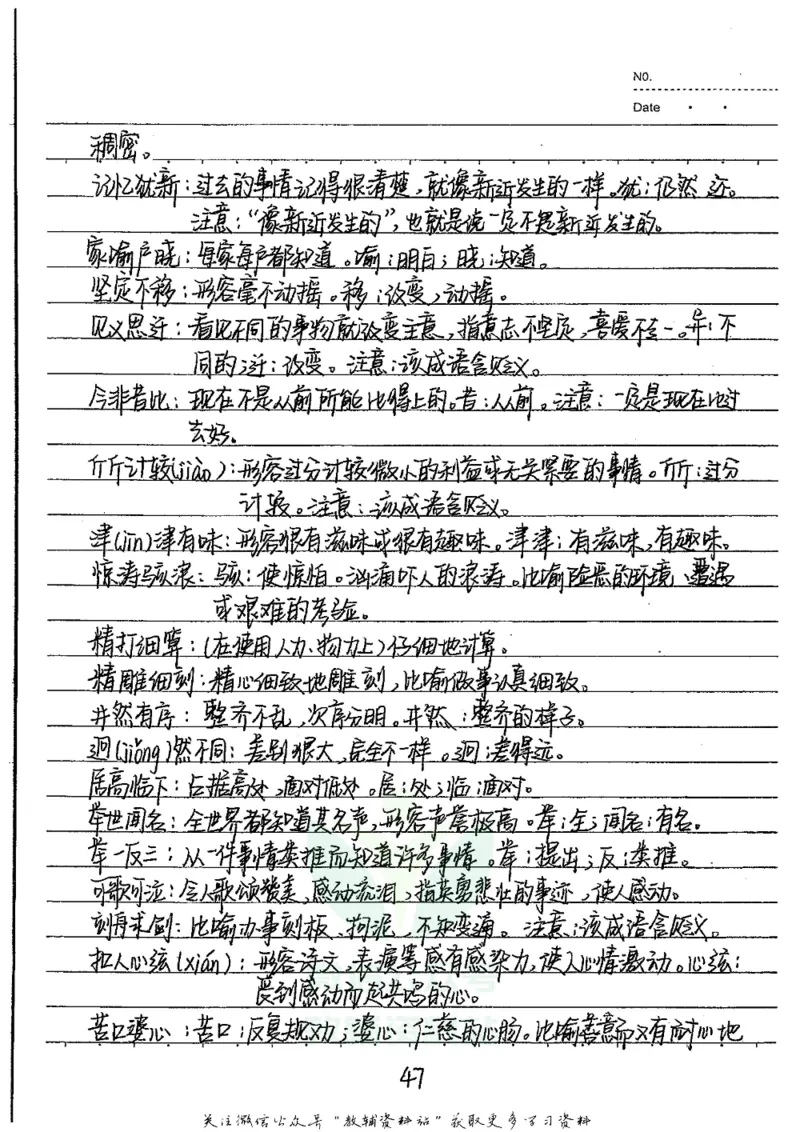 NO.
Date
稠密。
记忆犹新：过去的事情记得很清楚，就像新近发生的一样。犹：仍然，还。
注意：“像新近发生的”，也就是说一定不是新近发生的。
家喻户晓：每家每户都知道。喻：明白；晓：知道。
坚定不移：形容毫不动摇。移：改变，动摇。
见义思迁：看见不同的事物就改变主意，指意志不坚定，喜爱不专一。异：不
同的；迁：改变。注意：该成语含贬义。
今非昔比：现在不是从前所能比得上的。昔：从前。注意：一定是现在比过
去好。
斤斤计较(jiào)：形容过分计较微小的利益或无关紧要的事情。斤斤：过分
计较。注意：该成语含贬义。
津(jīn)津有味：形容很有滋味或很有趣味。津津：有滋味，有趣味。
惊涛骇浪：骇：使惊怕。汹涌吓人的浪涛。比喻险恶的环境、遭遇
或艰难的考验。
精打细算：(在使用人力、物力上)仔细地计算。
精雕细刻：精心细致地雕刻，比喻做事认真细致。
井然有序：整齐不乱，次序分明。井然：整齐的样子。
迥(jiǒng)然不同：差别很大，完全不一样。迥：差得远。
居高临下：占据高处，面对低处。居：处；临：面对。
举世闻名：全世界都知道其名声，形容声誉极高。举：全；闻名：有名。
举一反三：从一件事情类推而知道许多事情。举：提出；反：类推。
可歌可泣：令人歌颂赞美，感动流泪，指英勇悲壮的事迹，使人感动。
刻舟求剑：比喻办事刻板、拘泥，不知变通。注意：该成语含贬义。
扣人心弦(xián)：形容诗文、表演等感有感染力，使人心情激动。心弦：
受到感动而起共鸣的心。
苦口婆心：苦口：反复规劝；婆心：仁慈的心肠。比喻善意而又有耐心地
47
关注微信公众号“教辅资料站”获取更多学习资料